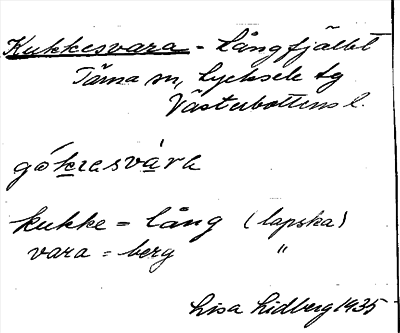 Kukkesvara = Långfjället
Tärna sn, Lycksele lg
Västerbottens l.
gókrasvára
kukke = lång (lapska)
vara = berg "
Lisa Lidberg 1935